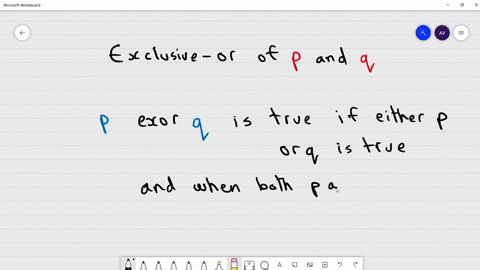 Microsoft Whiteboard
AV
Exclusive-or of p and q
p exor q is true if either p
or q is true
and when both p a